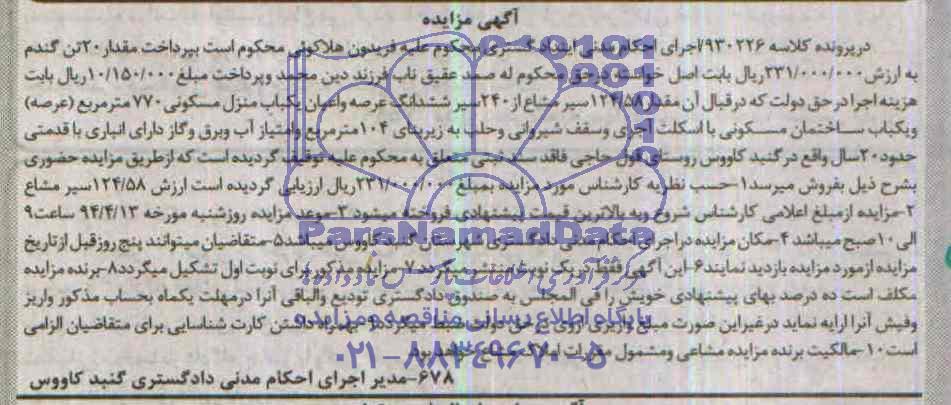 آگهی مزایده
درپرونده کلاسه ۹۳۰۲۲۶/اجرای احکام مدنی این دادگستری محکوم علیه فریدون هلاکوئی محکوم است بپرداخت مقدار ۲۰تن گندم
به ارزش ۲۳۱/۰۰۰/۰۰۰ریال بابت اصل خواسته درحق محکوم له صمد عقیق ناب فرزند دین محمد وپرداخت مبلغ ۱۰/۱۵۰/۰۰۰ریال بابت
هزینه اجرا درحق دولت که درقبال آن مقدار ۱۲۴/۵۸سیر مشاع از ۲۴۰سیر ششدانگ عرصه واعیان یکباب منزل مسکونی ۷۷۰ مترمربع (عرصه)
ویکباب ساختمان مسکونی با اسکلت آجری وسقف شیروانی وحلب به زیربنای ۱۰۴مترمربع وامتیاز آب وبرق وگاز دارای انباری با قدمتی
حدود۲۰سال واقع درگنبد کاووس روستای قول حاجی فاقد سند ثبتی متعلق به محکوم علیه توقیف گردیده است که ازطریق مزایده حضوری
بشرح ذیل بفروش میرسد۱-حسب نظریه کارشناس مورد مزایده بمبلغ ۲۳۱/۰۰۰/۰۰۰ریال ارزیابی گردیده است ارزش ۱۲۴/۵۸سیر مشاع
۲-مزایده ازمبلغ اعلامی کارشناس شروع وبه بالاترین قیمت پیشنهادی فروخته میشود ۳-موعد مزایده روزشنبه مورخه ۹۴/۴/۱۳ ساعت۹
الی۱۰صبح میباشد ۴-مکان مزایده دراجرای احکام مدنی دادگستری شهرستان گنبد کاووس میباشد۵-متقاضیان میتوانند پنج روزقبل ازتاریخ
مزایده ازمورد مزایده بازدید نمایند۶-این آگهی فقط دریک نوبت منتشر میگردد۷-مزایده مذکور برای نوبت اول تشکیل میگردد۸-برنده مزایده
مکلف است ده درصد بهای پیشنهادی خویش را فی المجلس به صندوق دادگستری تودیع والباقی آنرا درمهلت یکماه بحساب مذکور واریز
وفیش آنرا ارایه نماید درغیراین صورت مبلغ واریزی ازوی درحق دولت ضبط میگردد۹-بهمراه داشتن کارت شناسایی برای متقاضیان الزامی
است۱۰-مالکیت برنده مزایده مشاعی ومشمول مقررات املاک مشاع خواهدبود
۶۷۸-مدیر اجرای احکام مدنی دادگستری گنبد کاووس
ParsNamadData
پایگاه اطلاع رسانی مناقصه ومزایده
۰۲۱-۸۸۳۴۹۶۷۰-۵